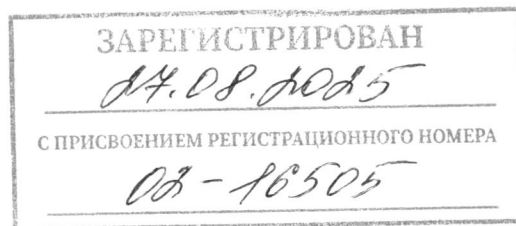 ЗАРЕГИСТРИРОВАН
27.08.2025
С ПРИСВОЕНИЕМ РЕГИСТРАЦИОННОГО НОМЕРА
02-16505